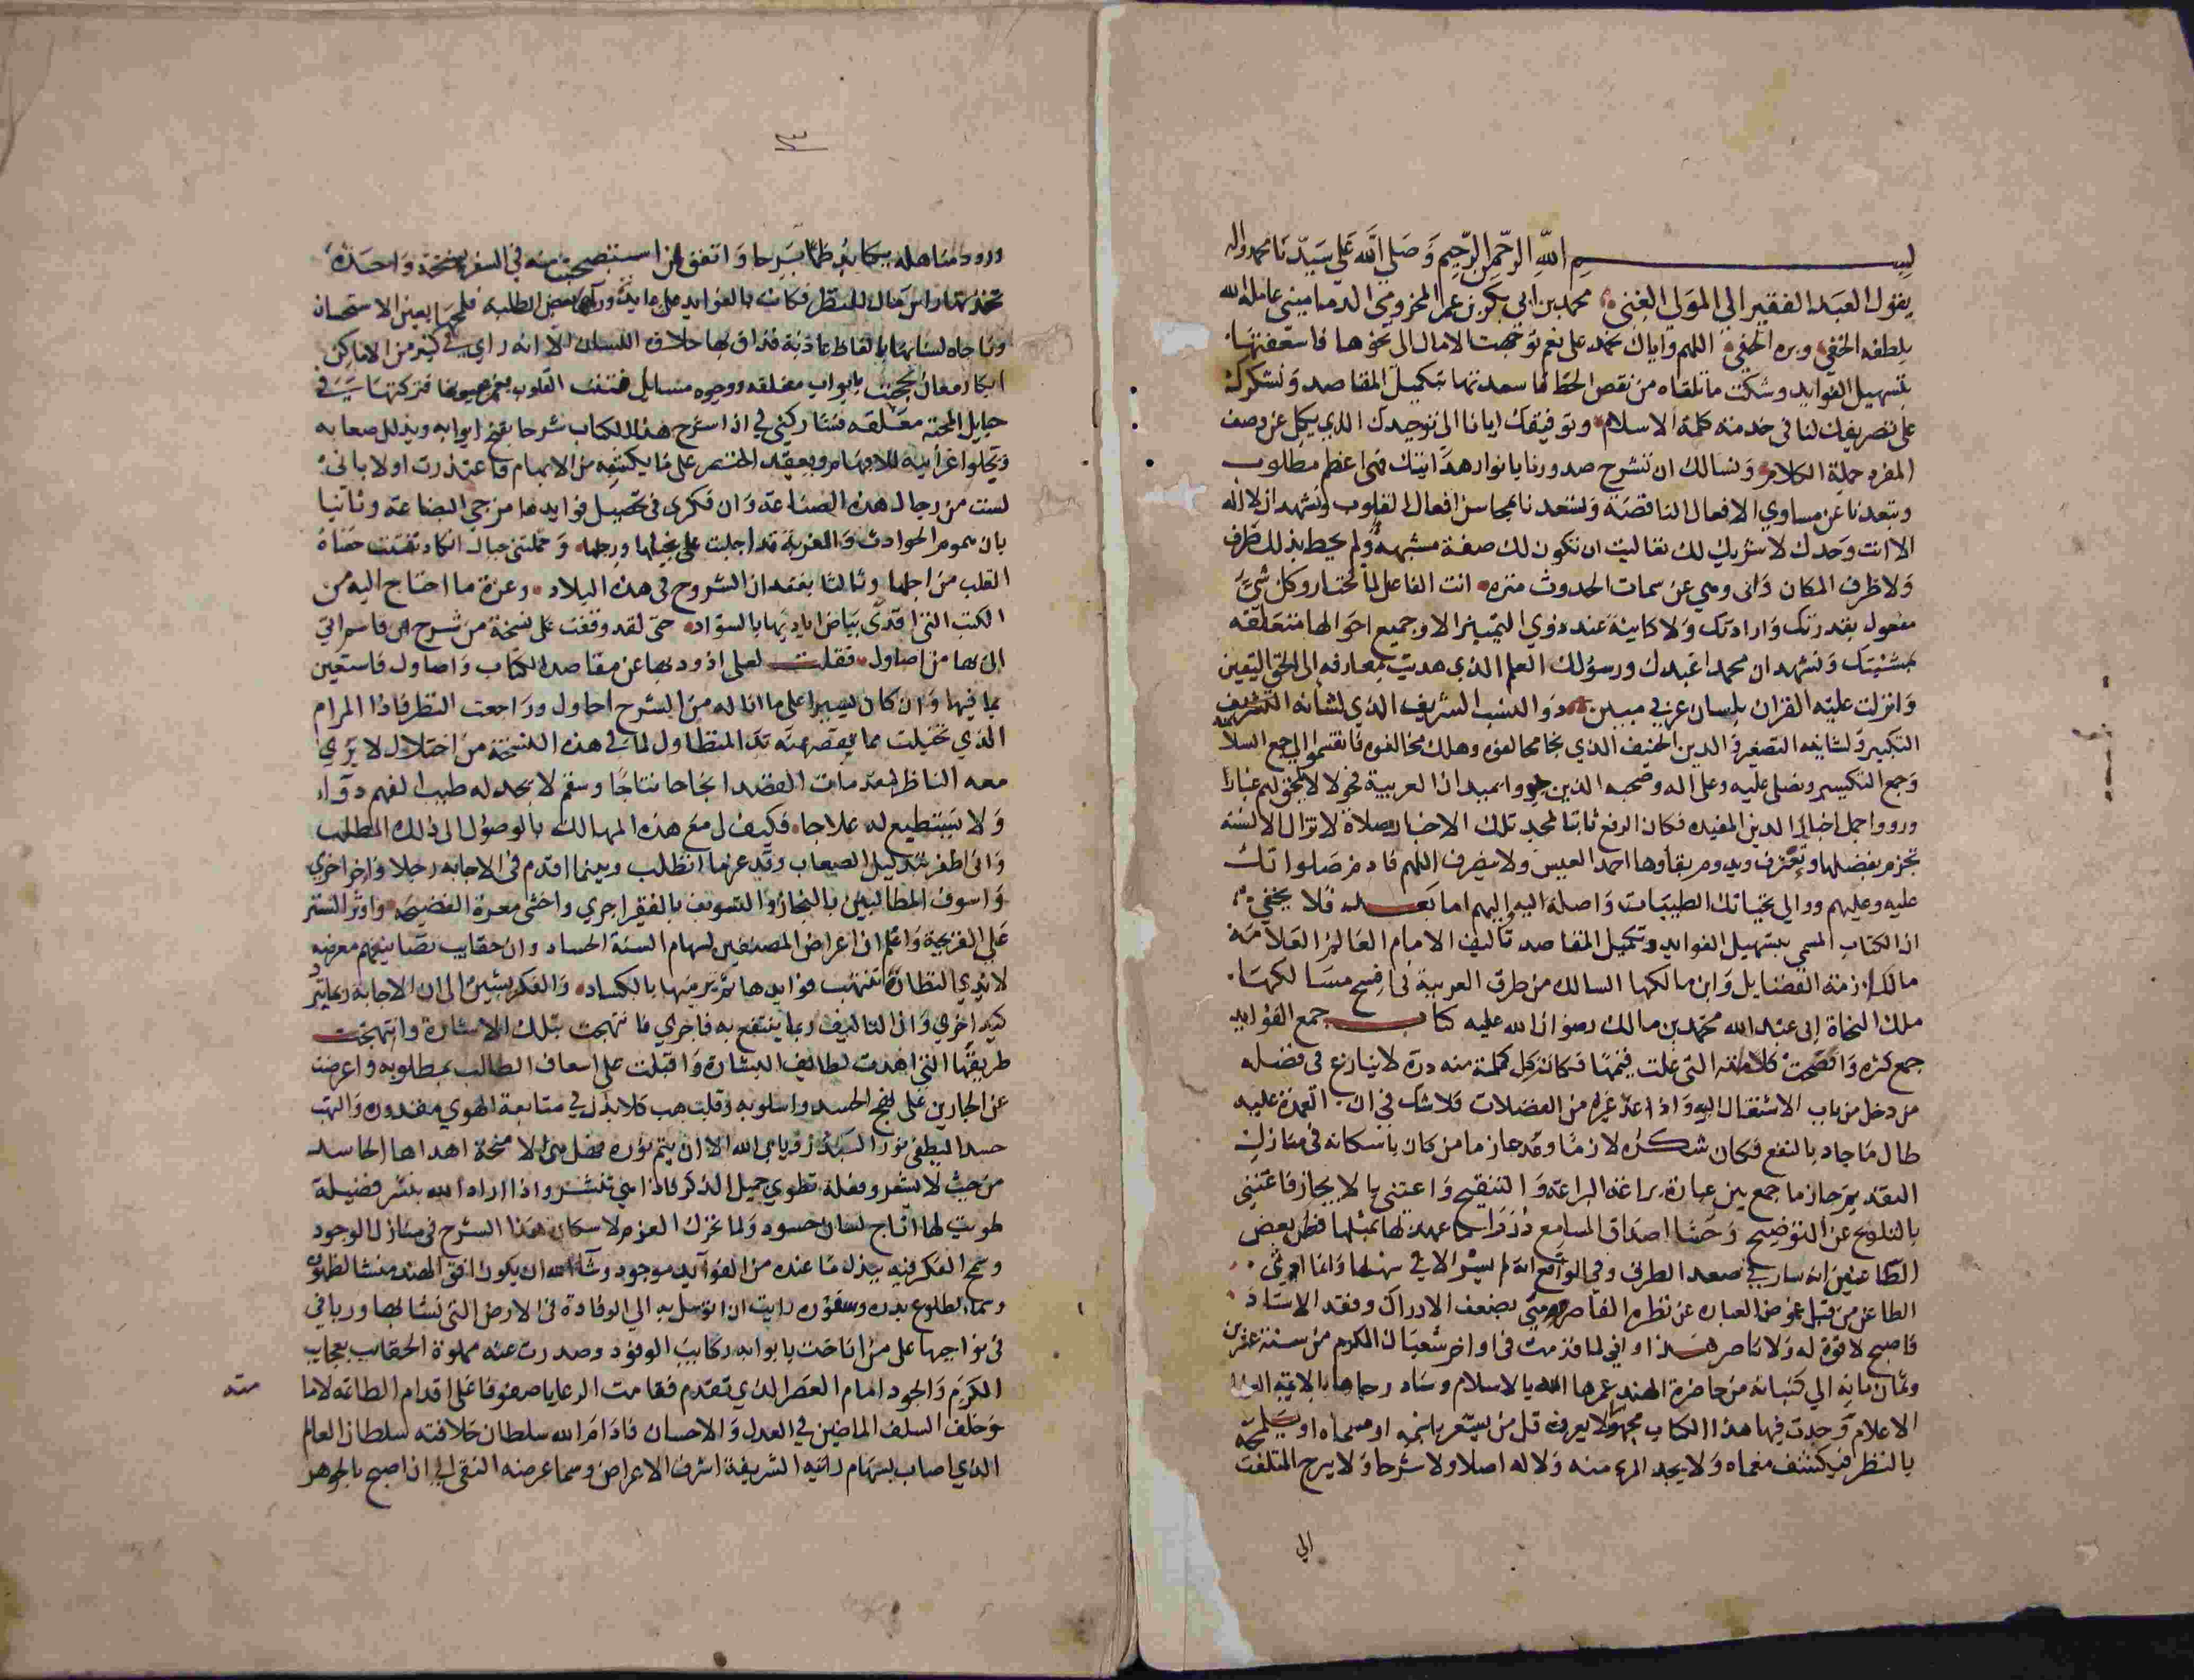 بسم الله الرحمن الرحيم وصلى الله على سيدنا محمد واله
يقول العبد الفقير الى المولى الغني محمد بن ابي بكر بن عمر المخزومي الدماميني عامله الله
بلطفه الخفي وبره الحفي اللهم واياك نحمد على نعم توجهت الامال الى نحوها فاسعفتها
بتسهيل الفوايد وشكت ما تلقاه من نقص الحظ فاسعدتها بتكميل المقاصد ونشكرك
على تصريفك لنا في خدمة كلمة الاسلام وتوفيقك ايانا الى توحيدك الذي يكل عن وصف
المفرد جملة الكلام ونسالك ان تشرح صدورنا بانوار هدايتك فهى اعظم مطلوب
وتبعدنا عن مساوي الافعال الناقصة وتسعدنا بمحاسن افعال القلوب ونشهد ان لا اله
الا انت وحدك لا شريك لك تعاليت ان تكون لك صفة مشبهة ولم يحط بذلك ظرف
ولا ظرف المكان وانى وهي عن سمات الحدوث منزه انت الفاعل المختار وكل شي
مفعول بقدرتك وارادتك ولا كاينة عند ذوي التمييز الا وجميع احوالها متعلقه
بمشئيتك ونشهد ان محمدا عبدك ورسولك العلم الذي هديت بمعارفه الى الحق اليقين
وانزلت عليه القران بلسان عربي مبين ذو النسب الشريف الذي لشانه الشريف
التكبير ولشانيه التصغير والدين الحنيف الذي نجا محالفوه وهلك مخالفوه فانقسموا الى جمع السلامة
وجمع التكسير ونصلى عليه وعلى اله وصحبه الذين جروا بميدان العربية فحولا لا يلحق لهم غبارا
ورووا جمل اخبار الدين المفيده فكان الرفع ثابتا لمجد تلك الاخبار صلاة لا تزال الالسنه
تجزم بفضلها وتعترف ويدوم بقاوها احمد العيس ولا ينصرف اللهم فادم صلواتك
عليه وعليهم ووالى تحياتك الطيبات واصلة اليه واليهم اما بعد فلا يخفى
ان الكتاب المسمى بتسهيل الفوايد وتكميل المقاصد تاليف الامام العالم العلامة
مالك ازمة الفضايل وابن مالكها السالك من طرق العربية في افسح مسالكها
ملك النحاة ابي عبد الله محمد بن مالك رضوان الله عليه كتاب جمع الفوايد
جمع كثره وافصحت كلماته التي علت قيمتها فكانت كل كلمة منه درة لا ينازع في فضله
من دخل من باب الاشتغال اليه واذا عد غيره من الفضلات فلا شك في ان العمدة عليه
طال ما جاد بالنفع فكان شكره لازما وقد حاز ما من كان باسكانه في منازل
النقد يرجاز ما جمع بين عبارة براعة البراعة والتنقيح واعتنى بالايجاز فاغتنى
بالتلويح عن التوضيح وحشا اصداق المسامع دررا ما عهد لها بمثلها فظن بعض
الطاعنين انه سار في صعد الطرق وفي الواقع انه لم يسر الا في سهلها وانما اوتي
الطاعن من قبل غموض العباره عن نظره القاصر ومني بضعف الادراك وفقد الاستاذ
فاصبح لا قوة له ولا ناصر هذا واني لما قدمت في اواخر شعبان المكرم من سنة عشرين
وثمان ماية الى كنباية من حاضرة الهند عمرها الله بالاسلام وساد رجاها بالايمة
الاعلام وجدت فيها هذا الكتاب مجهولا لا يعرف قل من يشعر باسمه او مسماه او يلمحه
بالنظر فيكشف معماه ولا يجد المرء منه ولا له اصلا ولا شرحا ولا يبرح المتلفت
الى
٣
ورود مناهله يكابد ظما برحا واتفق ان استصحبت منه في السفر نسخة واحدة
وناجاه لسانها بالفاظ عاذبة فذاق بها حلاوة اللسان الا انه راي في كثير من الاماكن
ابكار معان حجبت بابواب مغلقه ووجوه مسايل
حبايل المحنة معلقه فشاركني في ان اشرح هذا الكتاب شرحا يفتح ابوابه ويذلل صعابه
ويجلوا غرايبه للافهام ويعقد الخنصر على ما يكشفه من الابهام فاعتذرت اولا باني
لست من رجال هذه الصناعة وان فكري في تحصيل فوايدها مزجي البضاعة وثانيا
بان هموم الحوادث والغربة قد اجلبت علي بخيلها ورجلها وحملتني جبال انكاد تفتتت حصاة
القلب من اجلها وثالثا بفقدان الشروح في هذه البلاد وعزة ما احتاج اليه من
الكتب التي افدى بياض اياديها بالسواد حتى لقد وقفت على نسخة من شرح ابن قاسم اتي
الي بها من اصاول فقلت لعلي اذود بها عن مقاصد الكتاب واصاول فاستعين
بما فيها وان كان يسيرا على ما انا له من الشرح احاول وراجعت النظر فاذا المرام
الذي تخيلت مما يقصر عنه يد المتطاول لما في هذه النسخة من اختلال لا يري
معه الناظر لمقدمات القصد انجاحا نتاجا وسقم لا يجد له طبيب الفهم دواء
ولا يستطيع له علاجا فكيف لي مع هذه المهالك بالوصول الى ذلك المطلب
وانى اظفر بتذليل الصعاب وقد عز ما اتطلب وبينما اقدم في الاجابة رجلا واخر اخري
واسوف المطالبين بالنجاز والتسويف بالفقير احري واخشى معرة الفضيحه واوثر الستر
على القريحة واعلم ان اعراض المصنفين لسهام السنة الحساد وان حقايب تصانيفهم معرضه
لايدي النظارة تنتهب فوايدها ثم ترميها بالكساد والفكر يشير الى ان الاجابة ربما تثير
كيد اخري وان التاليف ربما ينتفع به فاجري فابتهجت بتلك الاشارة وانتهجت
طريقها التي اهدت لطايف البشارة واقبلت على اسعاف الطالب بمطلوبه واعرضت
عن الجارين على نهج الحسد واسلوبه وقلت هب كلا بذل في متابعة الهوي مقدوره والتهب
حسدا ليطفي نور البدر ويابي الله الا ان يتم نوره فهل هي الا منحة اهداها الحاسد
من حيث لا يشعر وفعلة تطوي جميل الذكر فاذا هي تنشر واذا اراد الله بنشر فضيلة
طويت لها اتاح لسان حسود ولما تحرك العزم لاسكان هذا الشرح في منازل الوجود
وسمح الفكر فيه ببذل ما عنده من الفوايد موجود وشاء الله ان يكون افق الهند منشا لظهوره
وسماء لطلوع بدره وسفوره رايت ان اتوسل به الى الوفادة في الارض التي نشا بها وربا في
في نواحيها على من اناخت بابوابه ركايب الوفود وصدرت عنه مملوة الحقايب بعجايب
الكرم والجود امام العصر الذي تقدم فقامت الرعايا صفوفا على اقدام الطاعه لامامته
وخلف السلف الماضين في العدل والاحسان فادام الله سلطان خلافته سلطان العالم
الذي اصاب بسهام رايه الشريفة اشرف الاغراض وسما عرضه النقي اذ اصبح بالجوهر